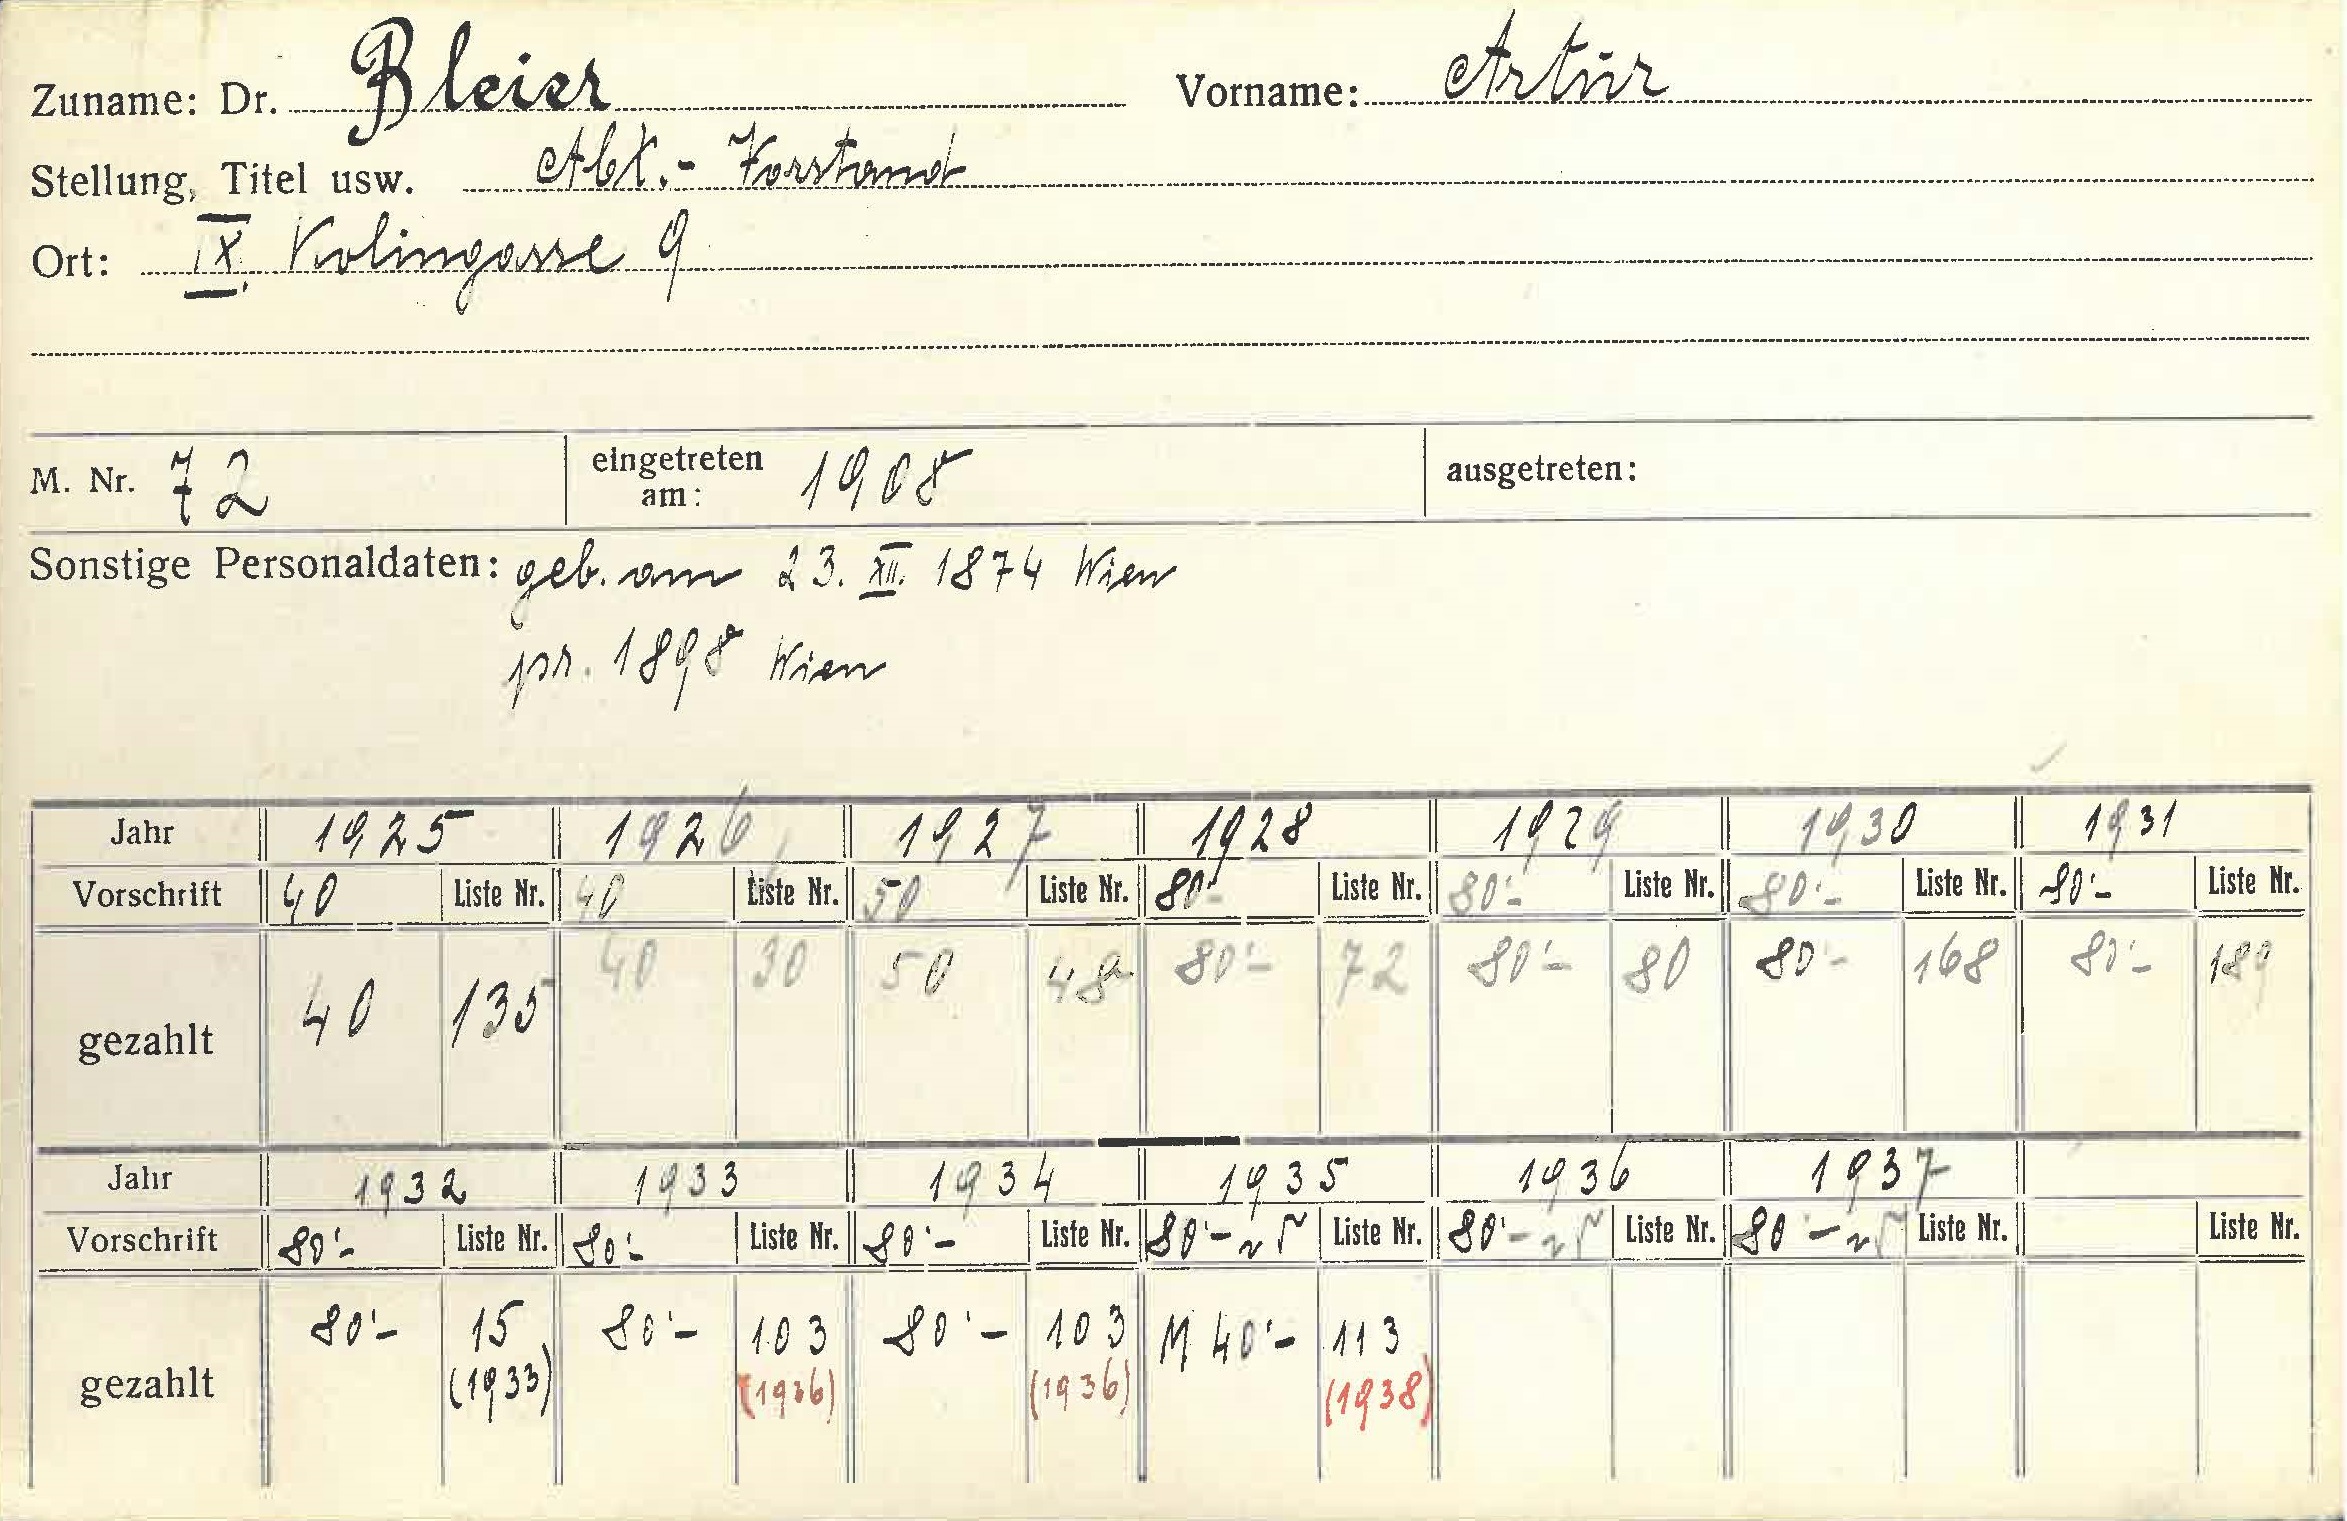 Zuname: Dr. Bleier Vorname: Artur
Stellung, Titel usw. Abt.- Vorstand
Ort: IX. Kolingasse 9
M. Nr. 72 eingetreten am: 1908 ausgetreten:
Sonstige Personaldaten: geb. am 23. XII. 1874 Wien
pr. 1898 Wien
Jahr 1925 1926 1927 1928 1929 1930 1931
Vorschrift 40 Liste Nr. 40 Liste Nr. 50 Liste Nr. 80'- Liste Nr. 80'- Liste Nr. 80'- Liste Nr. 80'- Liste Nr.
gezahlt 40 135 40 30 50 48 80'- 72 80'- 80 80'- 168 80'- 189
Jahr 1932 1933 1934 1935 1936 1937
Vorschrift 80'- Liste Nr. 80'- Liste Nr. 80'- Liste Nr. 80'- Liste Nr. 80'- Liste Nr. 80'- Liste Nr. Liste Nr.
gezahlt 80'- 15 80'- 103 80'- 103 M 40'- 113
(1933) (1936) (1936) (1938)